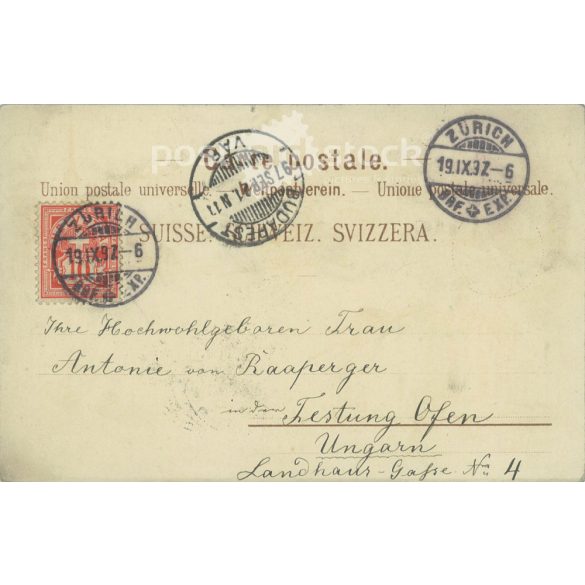 Carte postale.
Union postale universelle. — Weltpostverein. — Unione postale universale.
SUISSE. SCHWEIZ. SVIZZERA.
ZÜRICH
19.IX.97.-6
BRF. EXP.
ZÜRICH
19.IX.97.-6
BRF. EXP.
BUDAPEST
97 SEP 21 N 11
VÁR
10
Ihre Hochwohlgeboren Frau
Antonie von Raaperger
in der
Festung Ofen
Ungarn
Landhaus-Gasse No 4